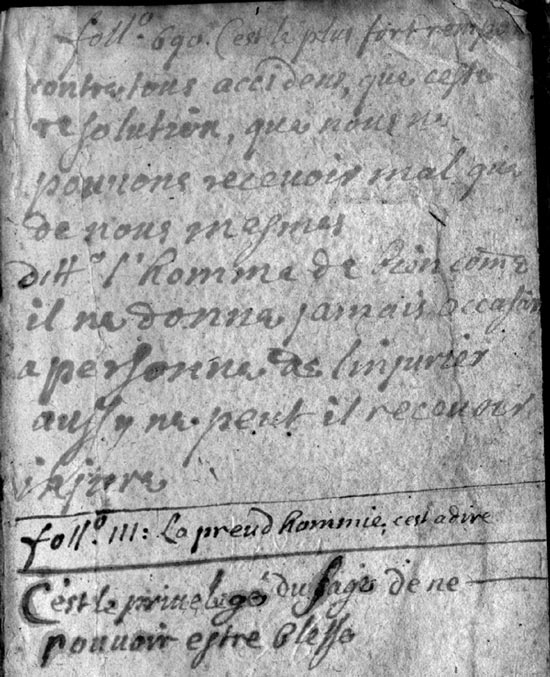 foll.º 690. C'est le plus fort rempar
contre tous accidens, que ceste
resolution, que nous ne
pouvons recevoir mal que
de nous mesmes
ditt.º l'homme de bien comē
il ne donne jamais occasion
a personne de linjurier
aussy ne peut il recevoir
injure
foll.º 111: La preud hommie, cest a dire
C'est le privelege du sage de ne
pouvoir estre blesse